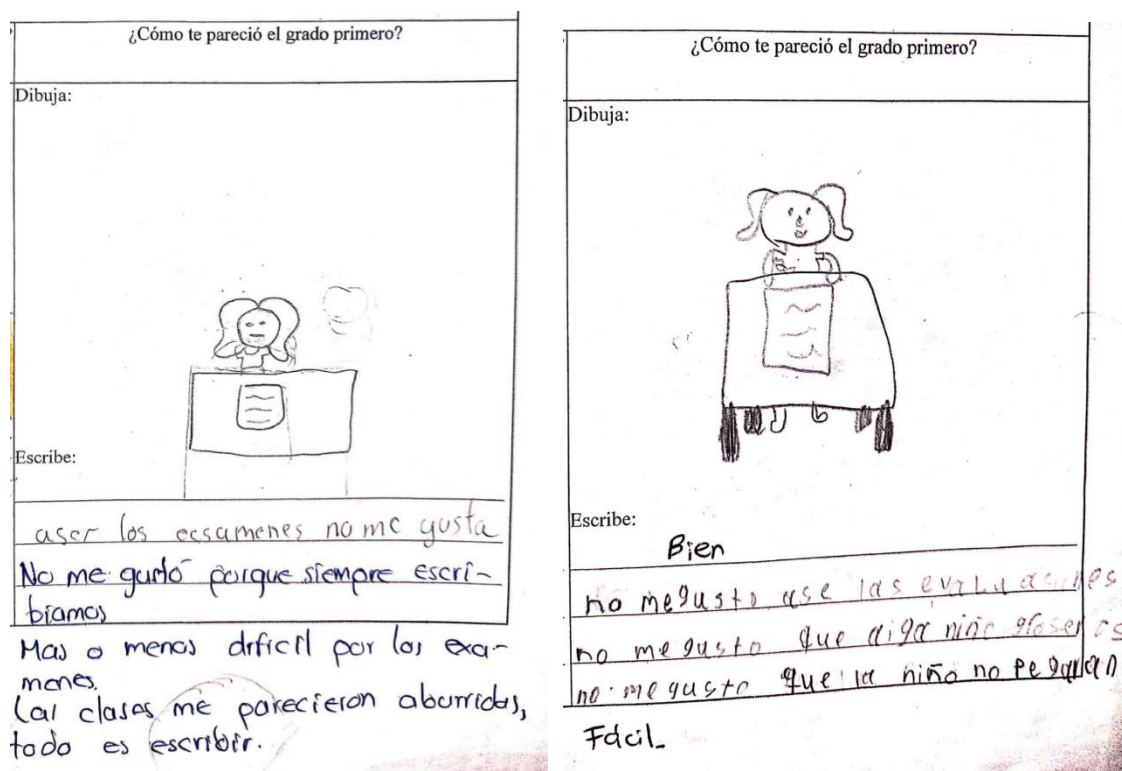 ¿Cómo te pareció el grado primero?
Dibuja:
Escribe:
aser los ecsamenes no me gusta
No me gustó porque siempre escri-
biamos
Mas o menos dificil por los exa-
menes.
Las clases me parecieron aburridas,
todo es escribir.
¿Cómo te pareció el grado primero?
Dibuja:
Escribe:
Bien
no megusto ase las evaluasines
no me gusto que diga niño groseros
no me gusto que la niño no pegaran
Fácil